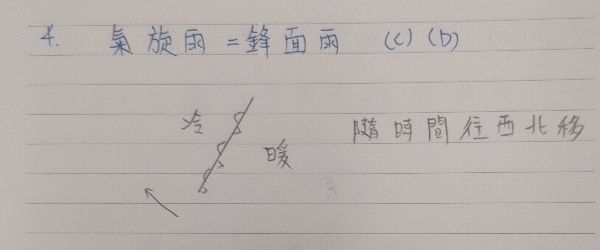 4. 氣旋雨=鋒面雨 (C)(D)
冷
暖
隨時間往西北移